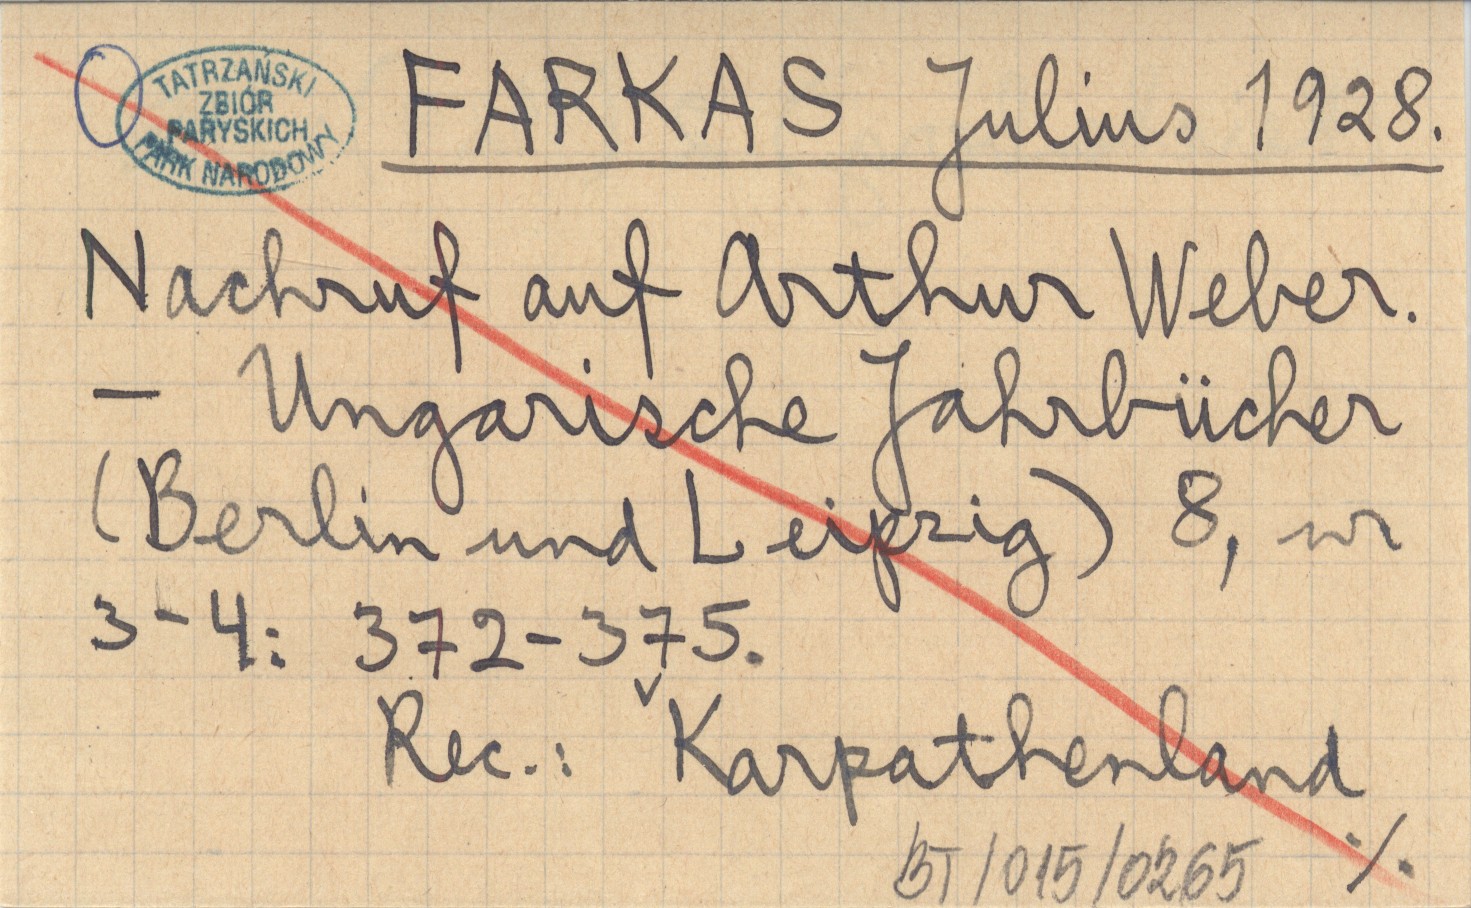 TATRZAŃSKI
ZBIÓR
PARYSKICH
PARK NARODOWY
FARKAS Julius 1928.
Nachruf auf Arthur Weber.
– Ungarische Jahrbücher
(Berlin und Leipzig) 8, nr
3-4: 372-375.
Rec.: Karpathenland
BT/015/0265 ./.